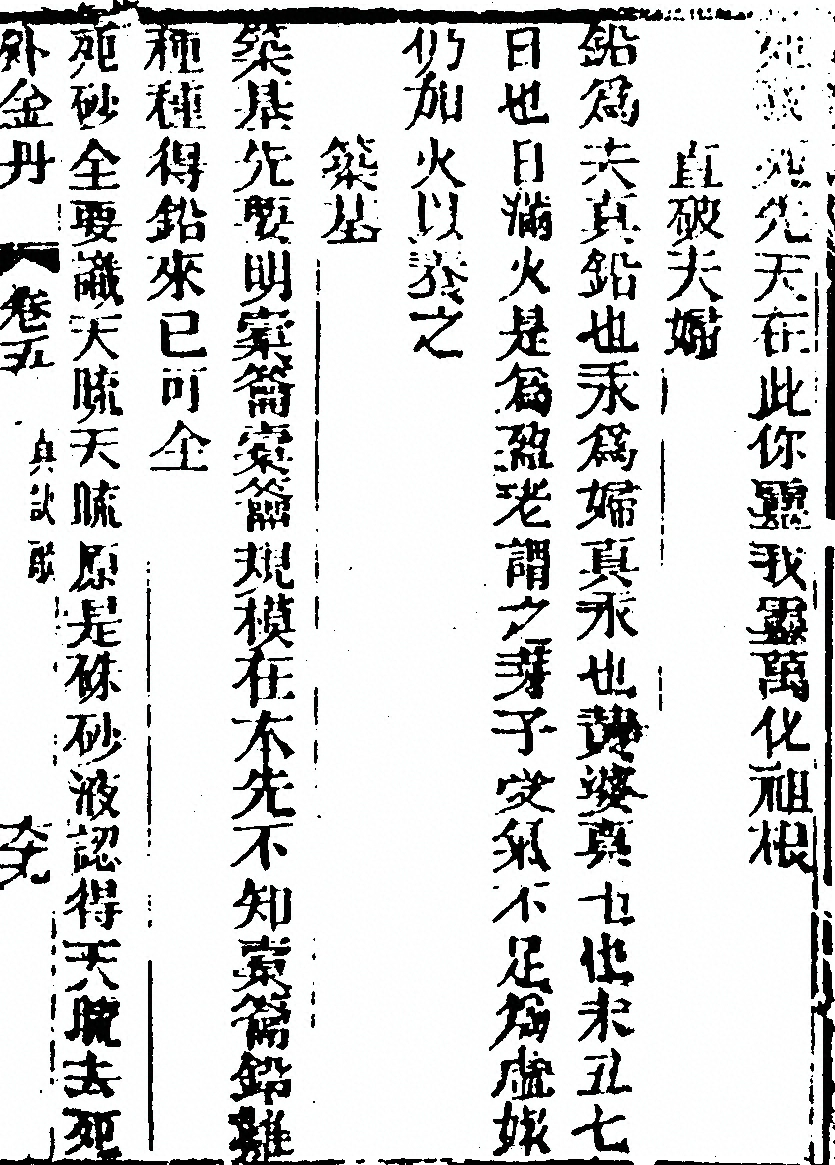 先天在此你靈我靈萬化祖根
直破夫婦
鉛爲夫真鉛也汞爲婦真汞也黃婆真土也未丑七
日也日滿火是爲盈老謂之芽子受氣不足爲虛嫩
仍加火以養之
築基
築基先要明橐籥橐籥規模在本先不知橐籥鉛難
種種得鉛來已可全
死砂全要識天硫天硫原是硃砂液認得天硫去死
外金丹 卷五 真訣 六九